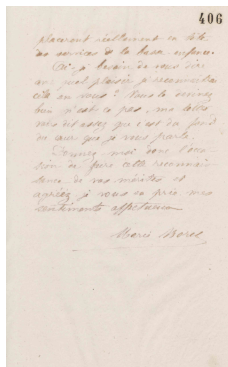 406
placeront réellement en tête
des services de la basse enfance.
Ai-je besoin de vous dire
avec quel plaisir je
en vous ? Vous le savez
bien n'est-ce pas, ma lettre
vous dit assez que c'est du fond
du cœur que je vous parle.
Donnez moi donc l'occa
sion de faire cette reconnais
sance de vos mérites et
agréez je vous en prie mes
sentiments affectueux